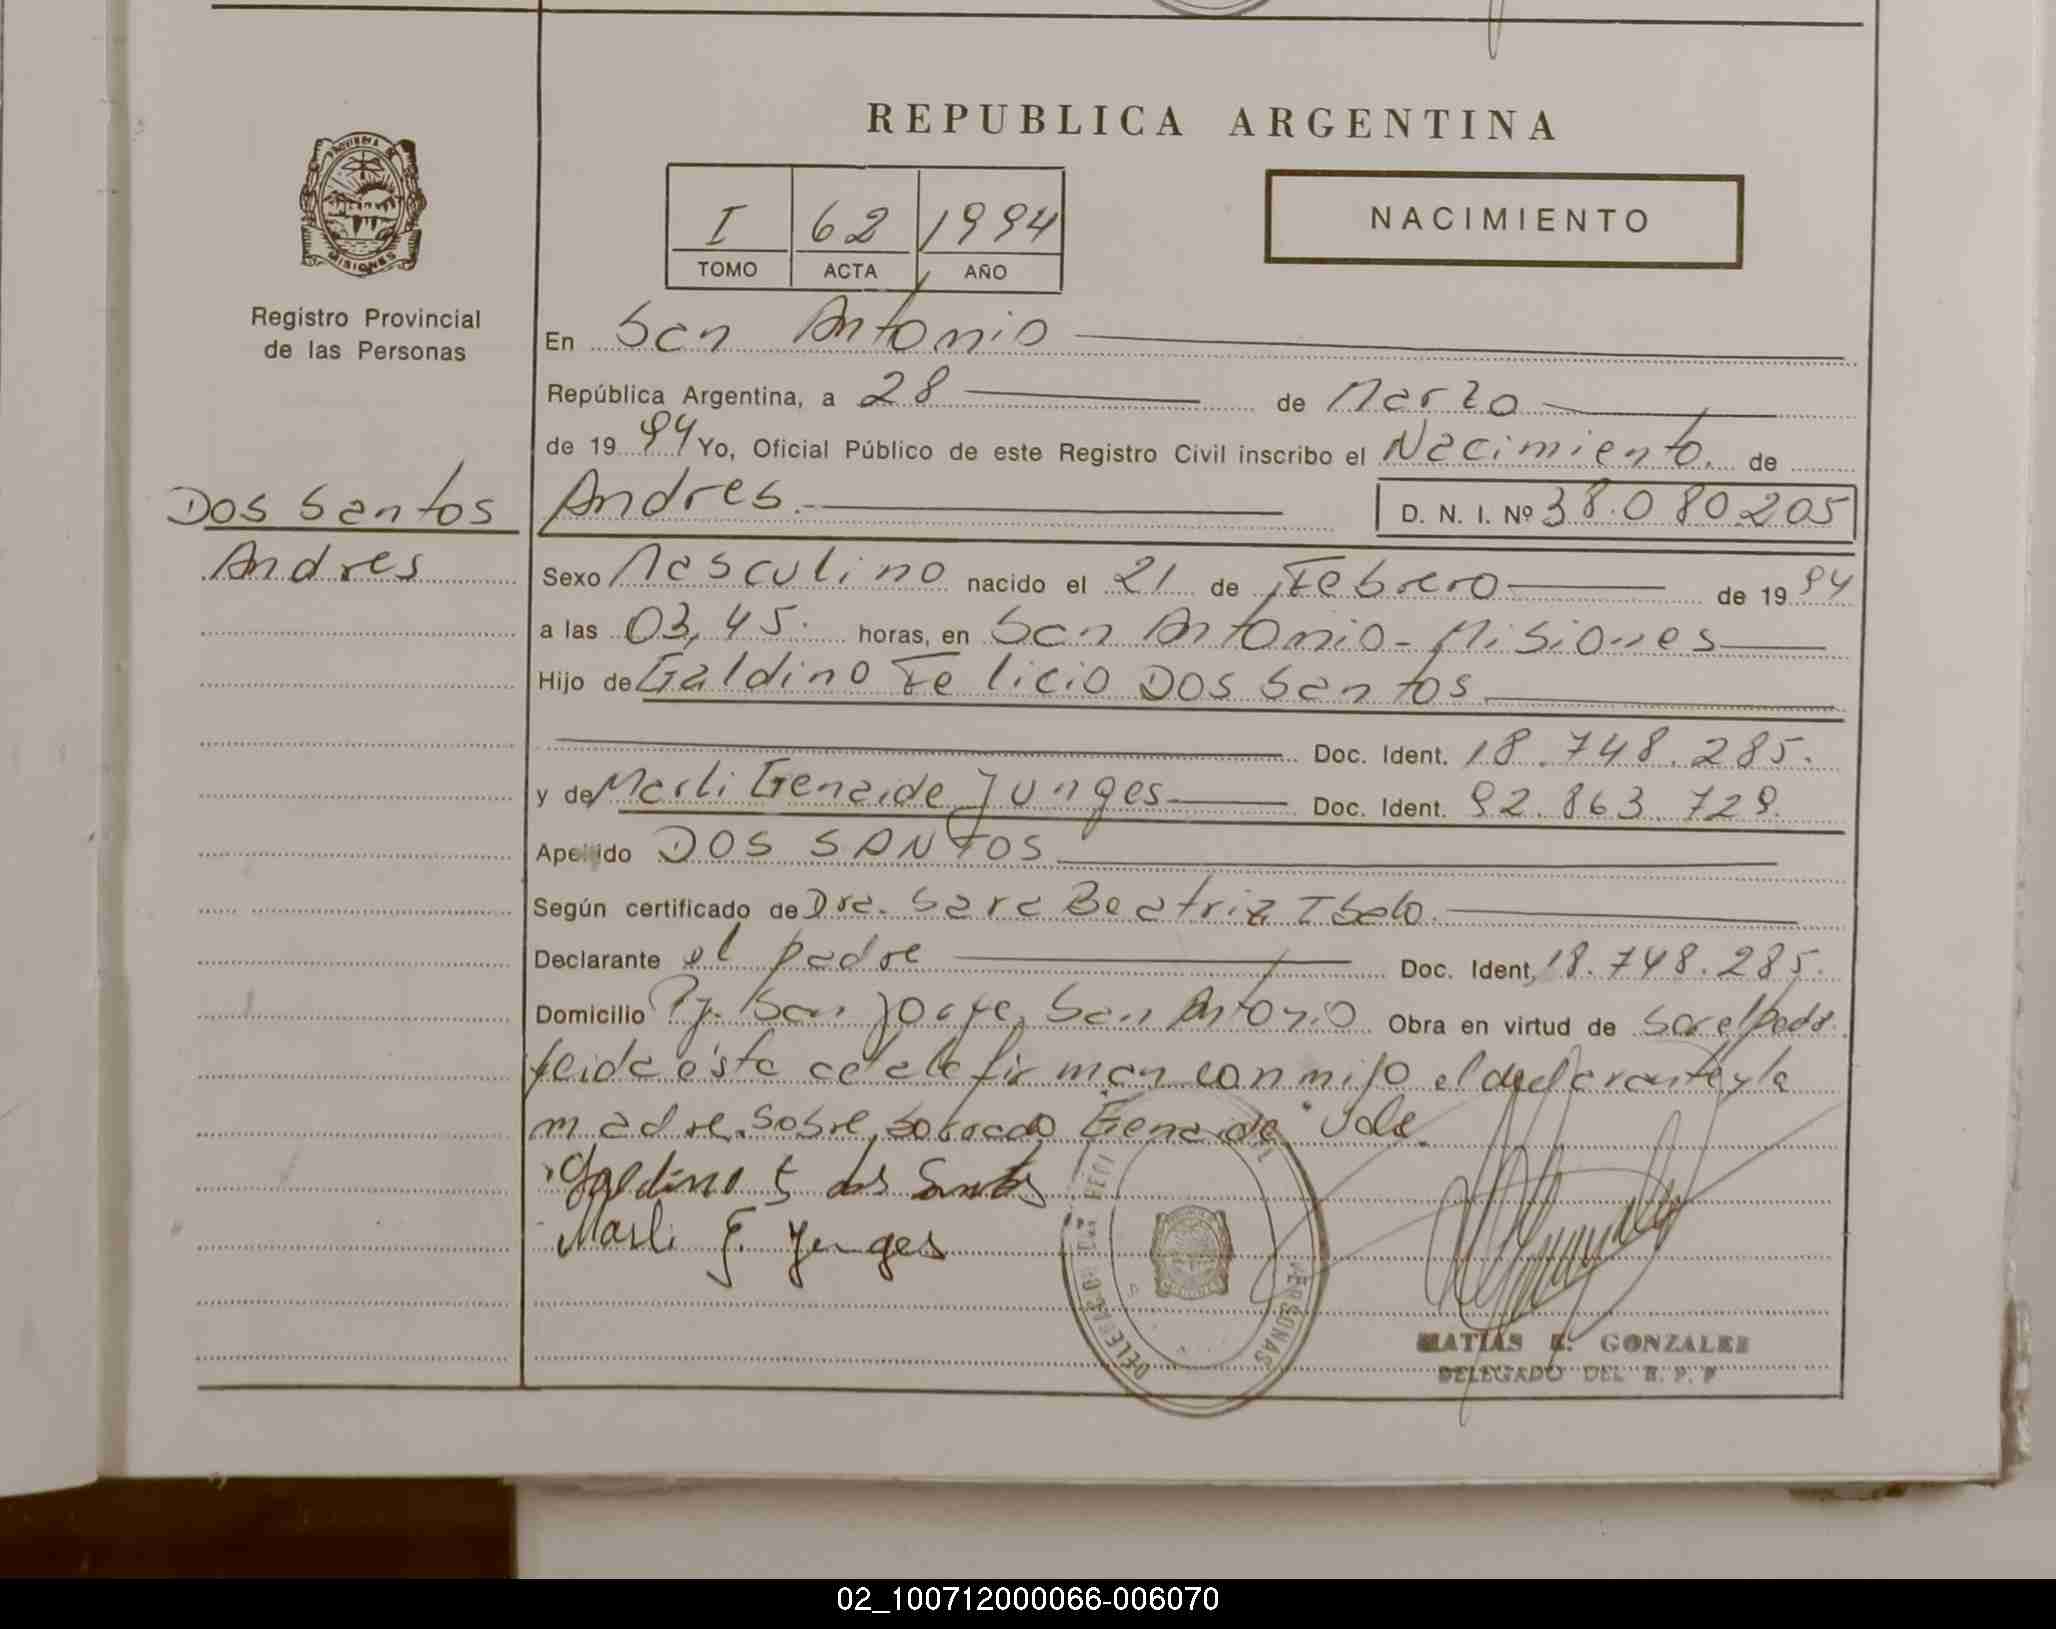 REPUBLICA ARGENTINA
PROVINCIA DE
MISIONES
Registro Provincial
de las Personas
I 62 1994
TOMO ACTA AÑO
NACIMIENTO
En San Antonio
República Argentina, a 28 de Marzo
de 1994 Yo, Oficial Público de este Registro Civil inscribo el Nacimiento de
Dos Santos
Andres
Andres D. N. I. Nº 38.080.205
Sexo Masculino nacido el 21 de Febrero de 1994
a las 03,45. horas, en San Antonio - Misiones
Hijo de Galdino Felicio Dos Santos
Doc. Ident. 18.748.285.
y de Marli Genaide Junges Doc. Ident. 92.863.729.
Apellido DOS SANTOS
Según certificado de Dra. Sara Beatriz
Declarante el padre Doc. Ident. 18.748.285.
Domicilio Pj. San Jorge, San Antonio Obra en virtud de ser el padre
leida ésta acta la firman conmigo el declarante y la
madre. Sobre borrado "Genaide" Vale.
Galdino F dos Santos
Marli G. Junges
DELEGACION PERSONAS
MATIAS E. GONZALEZ
DELEGADO DEL R. P. P
02_100712000066-006070